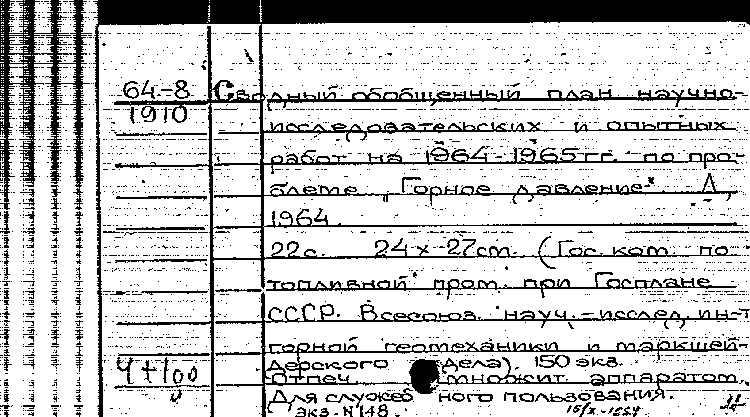 64-8
1910
Сводный обобщенный план научно-
исследовательских и опытных
работ на 1964-1965 гг. по про-
блеме „Горное давление". Л.,
1964.
22 с. 24 х 27 см. (Гос. ком. по
топливной пром. при Госплане
СССР. Всесоюз. науч.-исслед. ин-т
горной геомеханики и маркшей-
дерского дела). 150 экз.
Отпеч. множит. аппаратом.
Для служеб ного пользования.
экз. N 148.